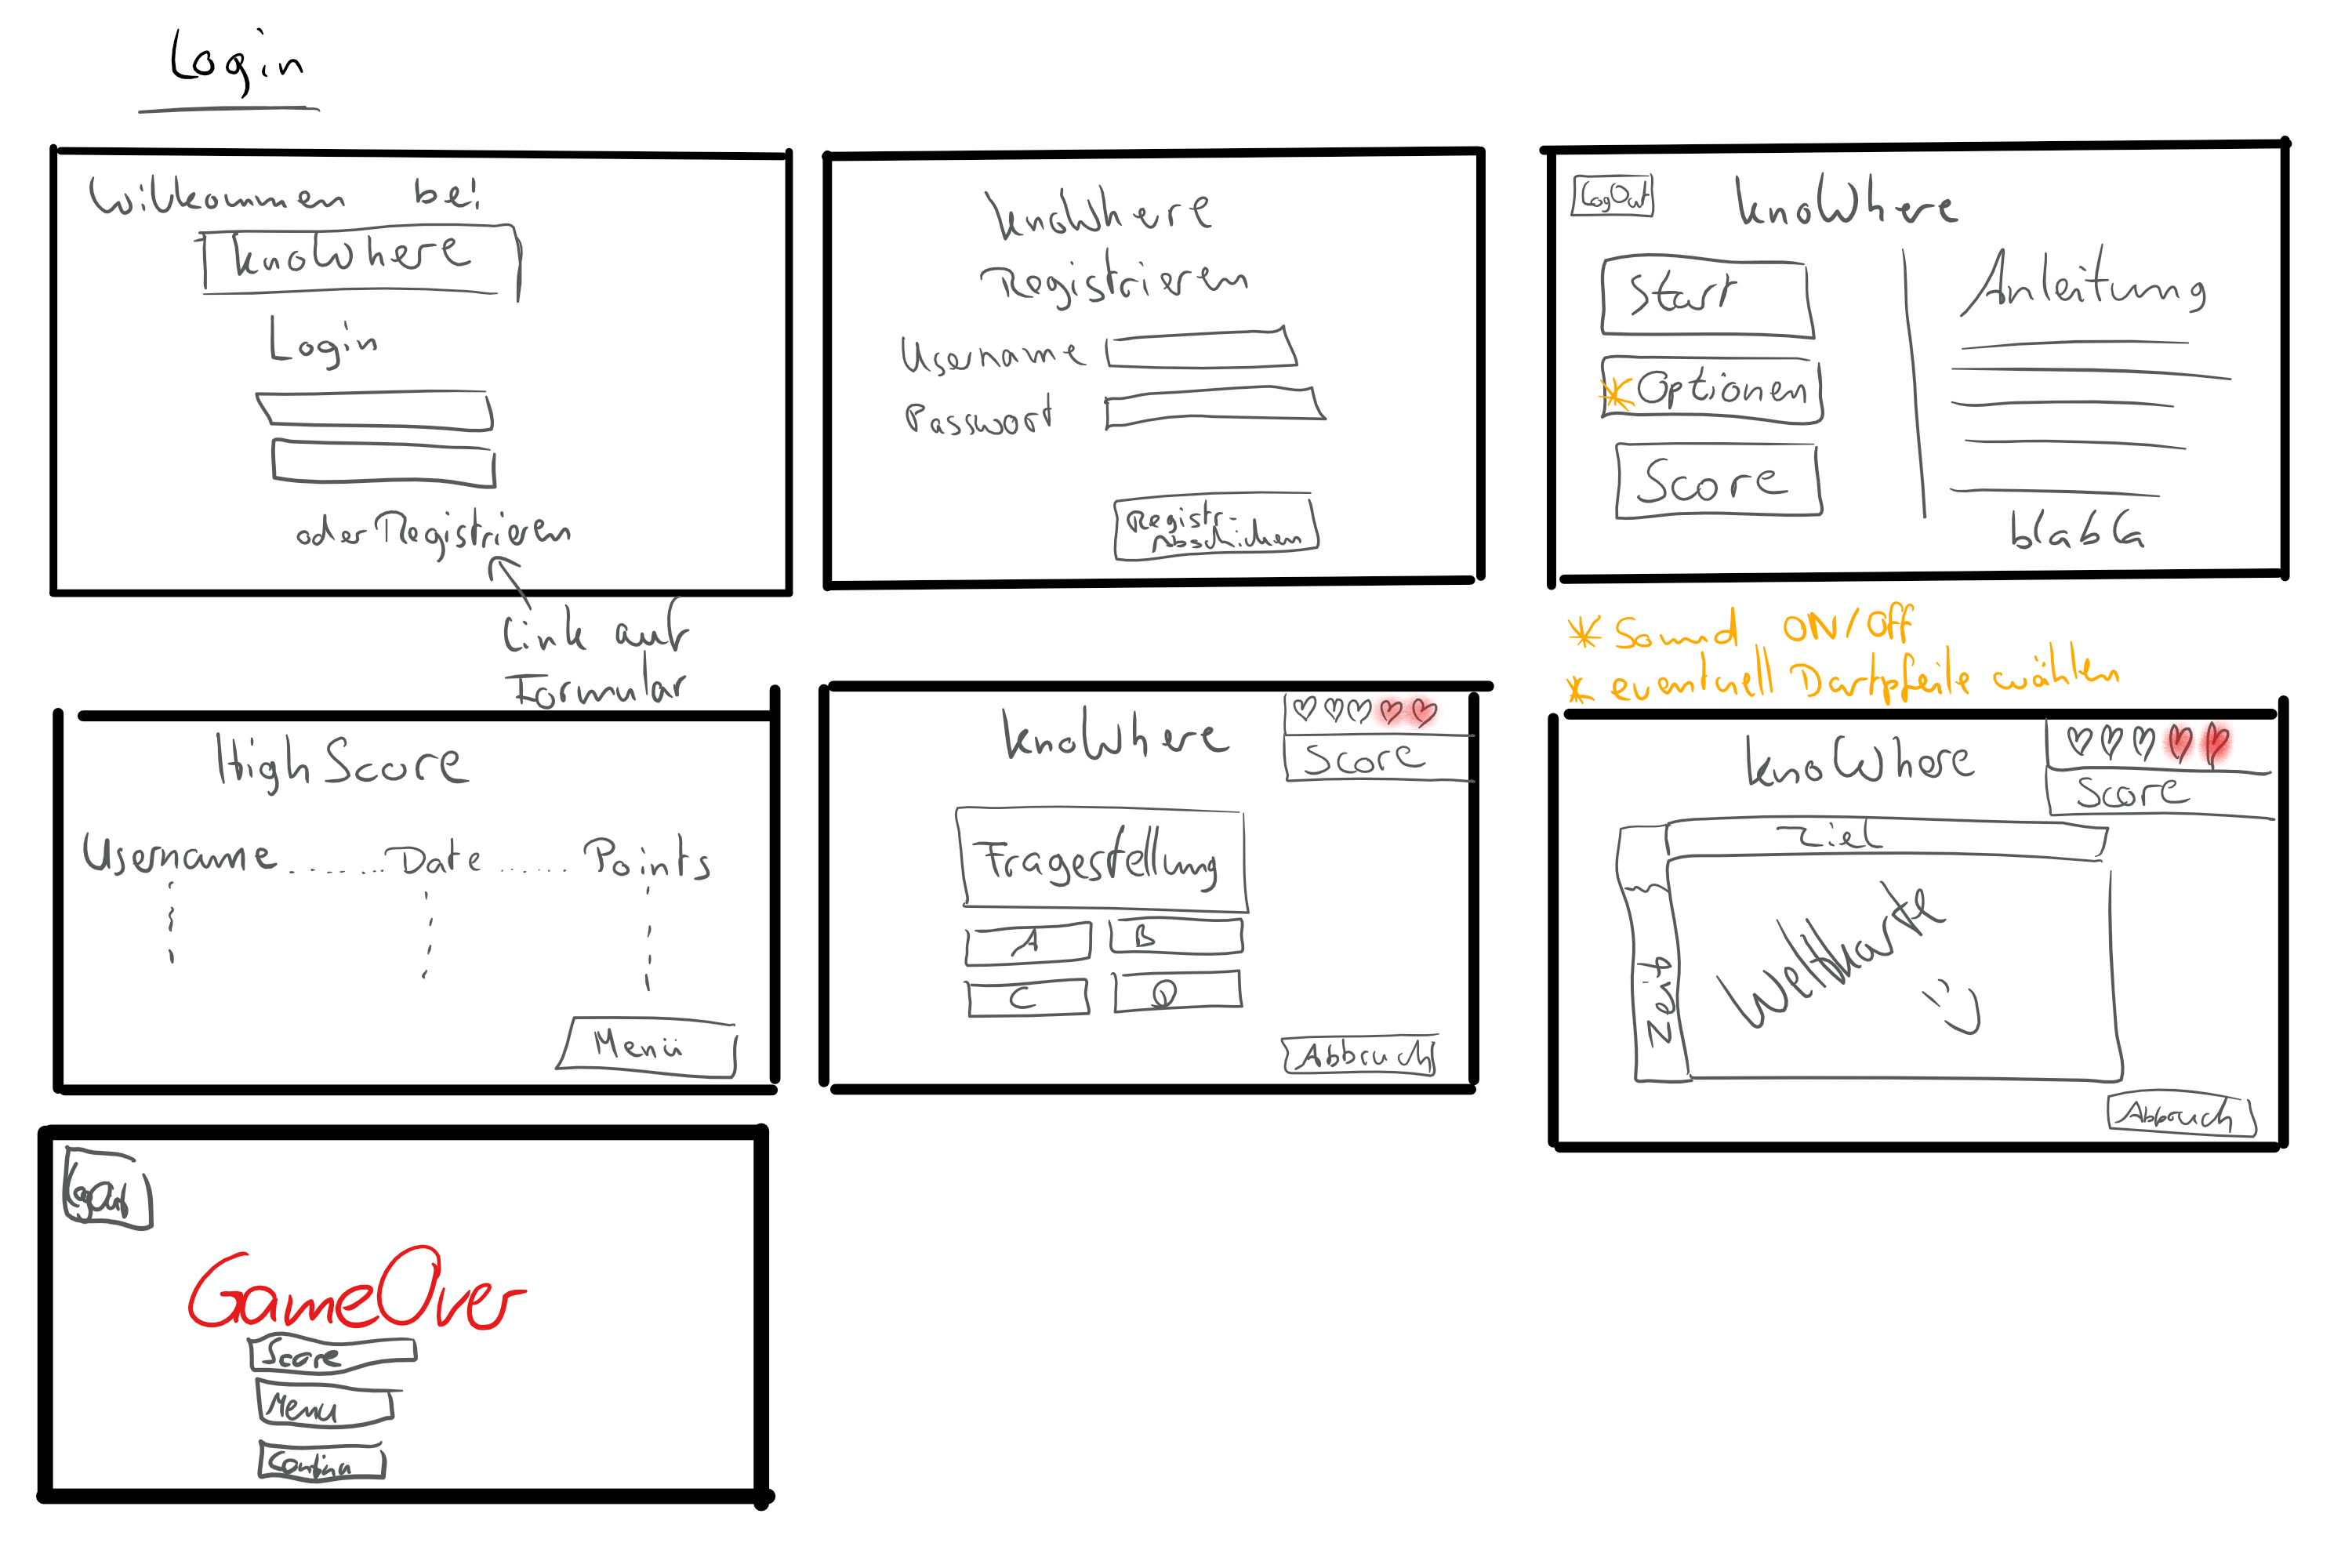 Login
Willkommen bei
knoWhere
Login
oder Registrieren
Link auf
Formular
knoWhere
Registrieren
Username
Passwort
Registr-
Abschicken
LogOut
knoWhere
Start
* Optionen
Score
Anleitung
blabla
* Sound ON/Off
* eventuell Dartpfeile wählen
HighScore
Username ...... Date ...... Points
Menü
knoWhere
Score
Fragestellung
A B
C D
Abbruch
knoWhere
Score
Ziel
Zeit
Weltkarte
Abbruch
GameOver
Score
Menu